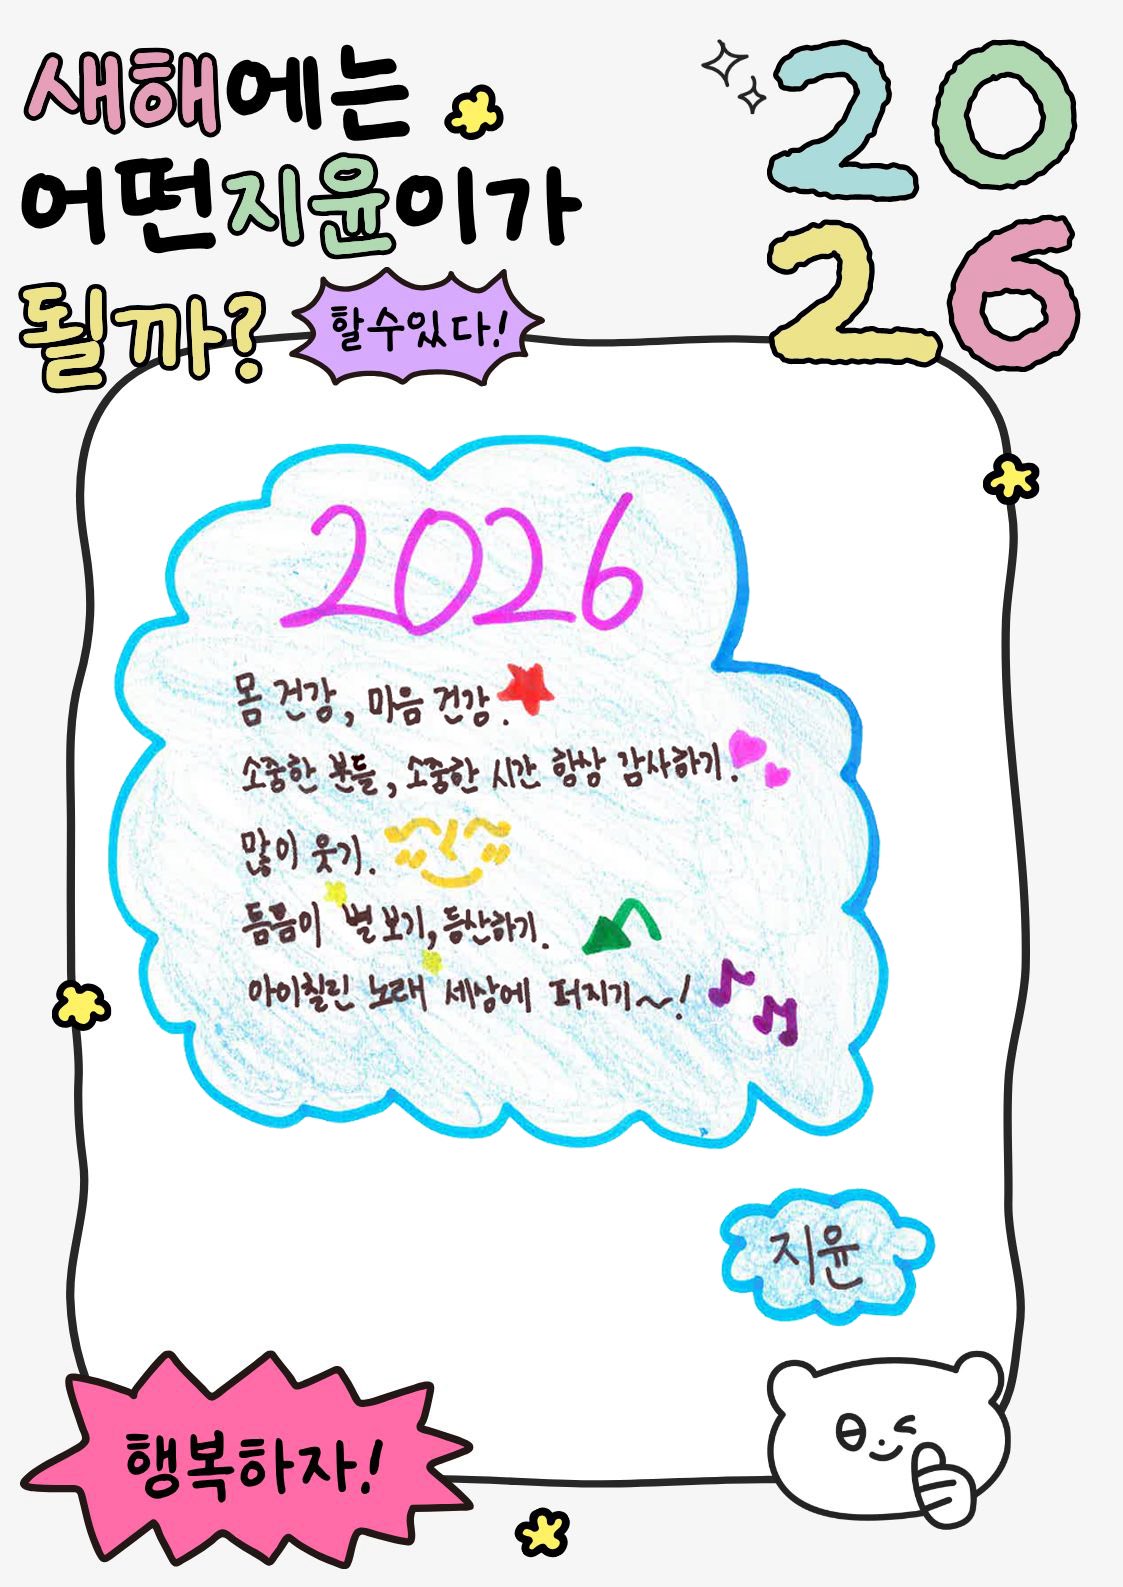 새해에는
어떤지윤이가
될까?
할수있다!
20
26
2026
몸 건강, 마음 건강.
소중한 분들, 소중한 시간 항상 감사하기.
많이 웃기.
틈틈이 별 보기, 등산하기.
아이칠린 노래 세상에 퍼지기~!
지윤
행복하자!